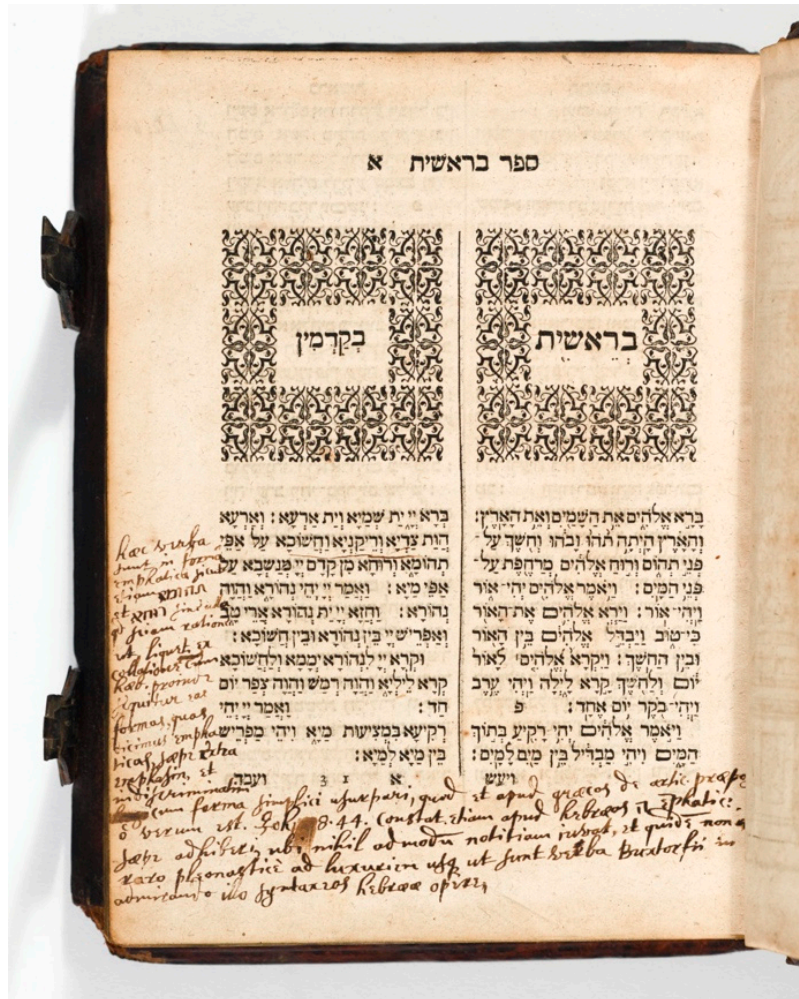 ספר בראשית א
בְּרֵאשִׁית
בָּרָא אֱלֹהִים אֵת הַשָּׁמַיִם וְאֵת הָאָרֶץ׃
וְהָאָרֶץ הָיְתָה תֹהוּ וָבֹהוּ וְחֹשֶׁךְ עַל־
פְּנֵי תְהוֹם וְרוּחַ אֱלֹהִים מְרַחֶפֶת עַל־
פְּנֵי הַמָּיִם׃ וַיֹּאמֶר אֱלֹהִים יְהִי־אוֹר
וַיְהִי־אוֹר׃ וַיַּרְא אֱלֹהִים אֶת־הָאוֹר
כִּי־טוֹב וַיַּבְדֵּל אֱלֹהִים בֵּין הָאוֹר
וּבֵין הַחֹשֶׁךְ׃ וַיִּקְרָא אֱלֹהִים לָאוֹר
יוֹם וְלַחֹשֶׁךְ קָרָא לָיְלָה וַיְהִי־עֶרֶב
וַיְהִי־בֹקֶר יוֹם אֶחָד׃ פ
וַיֹּאמֶר אֱלֹהִים יְהִי רָקִיעַ בְּתוֹךְ
הַמָּיִם וִיהִי מַבְדִּיל בֵּין מַיִם לָמָיִם׃
ויעש
בְּקַדְמִין
בְּרָא יְיָ יַת שְׁמַיָּא וְיַת אַרְעָא׃ וְאַרְעָא
הֲוַת צָדְיָא וְרֵיקַנְיָא וַחֲשׁוֹכָא עַל אַפֵּי
תְהוֹמָא וְרוּחָא מִן קֳדָם יְיָ מְנַשְּׁבָא עַל
אַפֵּי מַיָּא׃ וַאֲמַר יְיָ יְהִי נְהוֹרָא וַהֲוָה
נְהוֹרָא׃ וַחֲזָא יְיָ יַת נְהוֹרָא אֲרֵי טָב
וְאַפְרֵישׁ יְיָ בֵּין נְהוֹרָא וּבֵין חֲשׁוֹכָא׃
וּקְרָא יְיָ לִנְהוֹרָא יְמָמָא וְלַחֲשׁוֹכָא
קְרָא לֵילְיָא וַהֲוָה רְמַשׁ וַהֲוָה צְפַר יוֹם
חַד׃ וַאֲמַר יְיָ יְהִי
רְקִיעָא בִּמְצִיעוּת מַיָּא וִיהִי מַפְרִישׁ
בֵּין מַיָּא לְמַיָּא׃
א 3 1 ועבד
haec verba
sunt in forma
emphatica sicut
etiam
et
ut liquet ex
collatione cum
Haeb. proinde
formas, quas
dicimus empha
ticas, saepe extra
emphasin, et
indiscriminatim
cum forma simplici usurpari, quod et apud graecos de artic. praepo
ὁ verum est. Joh. 8. 44. constat, etiam apud hebraeos ה emphatic:
saepe adhiberi, ubi nihil admodu notitiam iuvat, et quide non
raro pleonastice ad luxuriem usq ut sunt verba Buxtorfii in
admirando illo syntaxeos hebraeae opere,